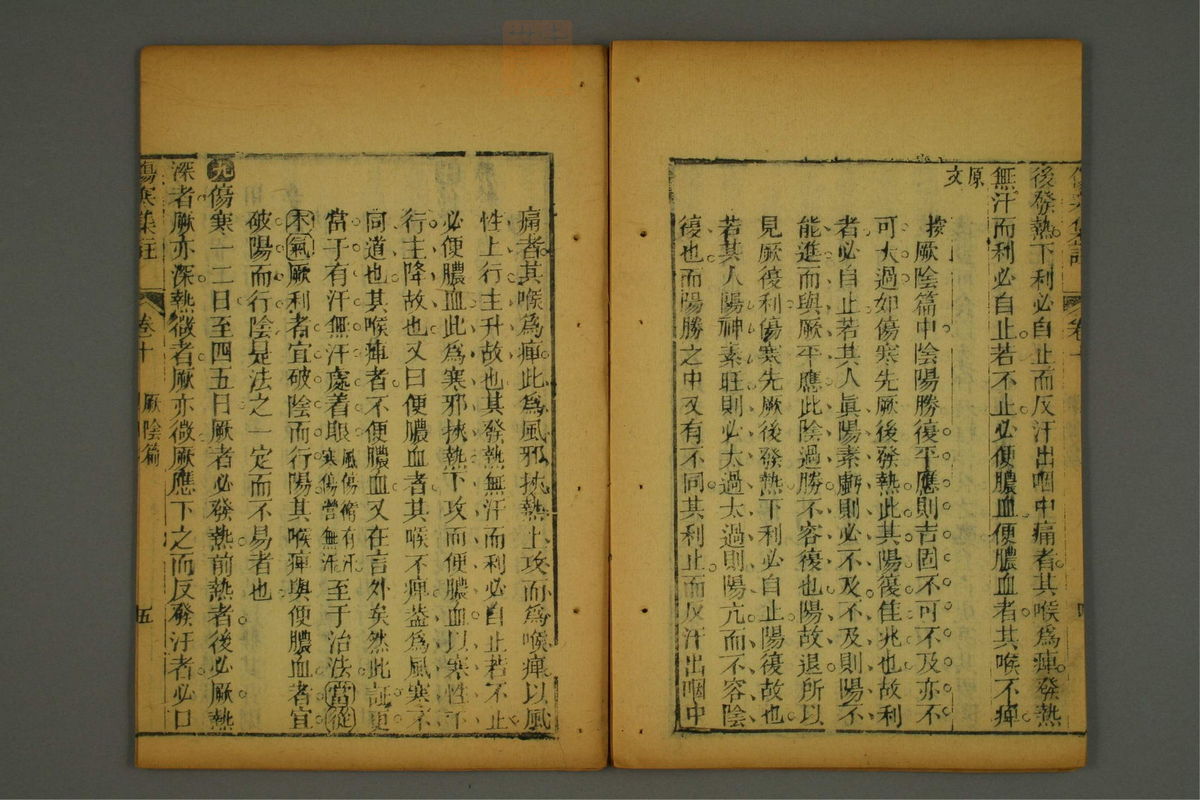 後發熱下利必自止而反汗出咽中痛者其喉爲痺發熱
無汗而利必自止若不止必便膿血便膿血者其喉不痺
原文
按厥陰篇中陰陽勝復平應則吉固不可不及亦不
可太過如傷寒先厥後發熱此其陽復佳兆也故利
者必自止若其人眞陽素虧則必不及不及則陽不
能進而與厥平應此陰過勝不容復也陽故退所以
見厥復利傷寒先厥後發熱下利必自止陽復故也
若其人陽神素旺則必太過太過則陽亢而不容陰
復也而陽勝之中又有不同其利止而反汗出咽中
傷寒集註
卷十
痛者其喉爲痺此爲風邪挾熱上攻而爲喉痺以風
性上行主升故也其發熱無汗而利必自止若不止
必便膿血此爲寒邪挾熱下攻而便膿血以寒性下
行主降故也又曰便膿血者其喉不痺蓋爲風寒不
同道也其喉痺者不便膿血又在言外矣然此証更
當于有汗無汗處着眼風傷衛有汗寒傷營無汗至于治法當從
本氣厥利者宜破陰而行陽其喉痺與便膿血者宜
破陽而行陰是法之一定而不易者也
九傷寒一二日至四五日厥者必發熱前熱者後必厥熱
深者厥亦深熱微者厥亦微厥應下之而反發汗者必口
傷寒集註
卷十
厥陰篇
五